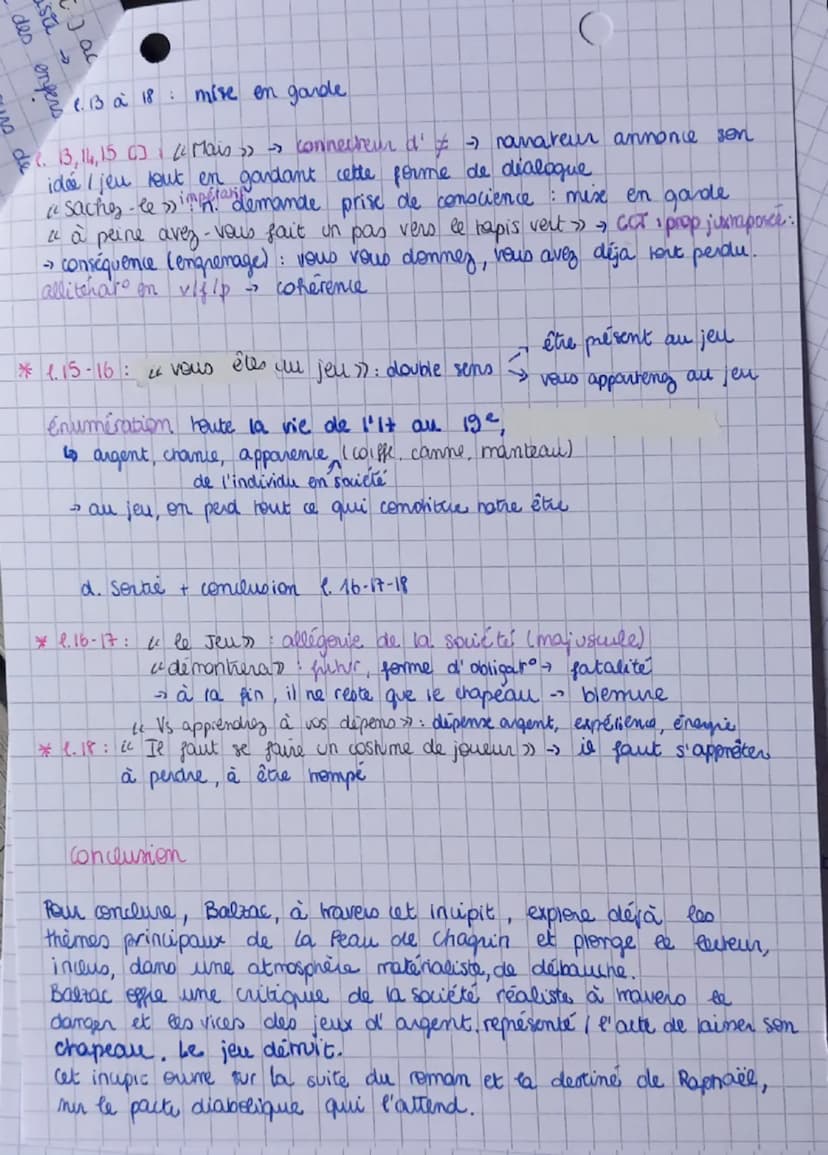 l. 13 à 18 : mise en garde
l. 13, 14, 15 [] : « Mais » → connecteur d' ≠ → narrateur annonce son
idée / jeu tout en gardant cette forme de dialogue
« sachez-le » impératif : n. demande prise de conscience : mise en garde
« à peine avez-vous fait un pas vers le tapis vert » → CCT : prop juxtaposée :
→ conséquence (engrenage) : vous vous donnez, vous avez déjà tout perdu.
allitérat° en v/f/p → cohérence
* l. 15-16 : « vous êtes au jeu » : double sens → être présent au jeu
→ vous appartenez au jeu
énumération toute la vie de l'H au 19e,
↳ argent, chance, apparence (coiffe, canne, manteau)
de l'individu en société
→ au jeu, on perd tout ce qui constitue notre être
d. Sortie + conclusion l. 16-17-18
* l. 16-17 : « le Jeu » : allégorie de la société (majuscule)
« démontrera » : futur, forme d'obligat° → fatalité
→ à la fin, il ne reste que le chapeau →
« Vs apprendrez à vos dépens » : dépense argent, expérience, énergie
* l. 18 : « Il faut se faire un costume de joueur » → il faut s'apprêter
à perdre, à être trompé
Conclusion
Pour conclure, Balzac, à travers cet incipit, explore déjà les
thèmes principaux de la Peau de Chagrin et plonge le lecteur,
inclus, dans une atmosphère matérialiste, de débauche.
Balzac offre une critique de la société réaliste à travers le
danger et les vices des jeux d'argent, représenté / l'acte de laisser son
chapeau. Le jeu détruit.
Cet incipit ouvre sur la suite du roman et la destiné de Raphaël,
sur le pacte diabolique qui l'attend.